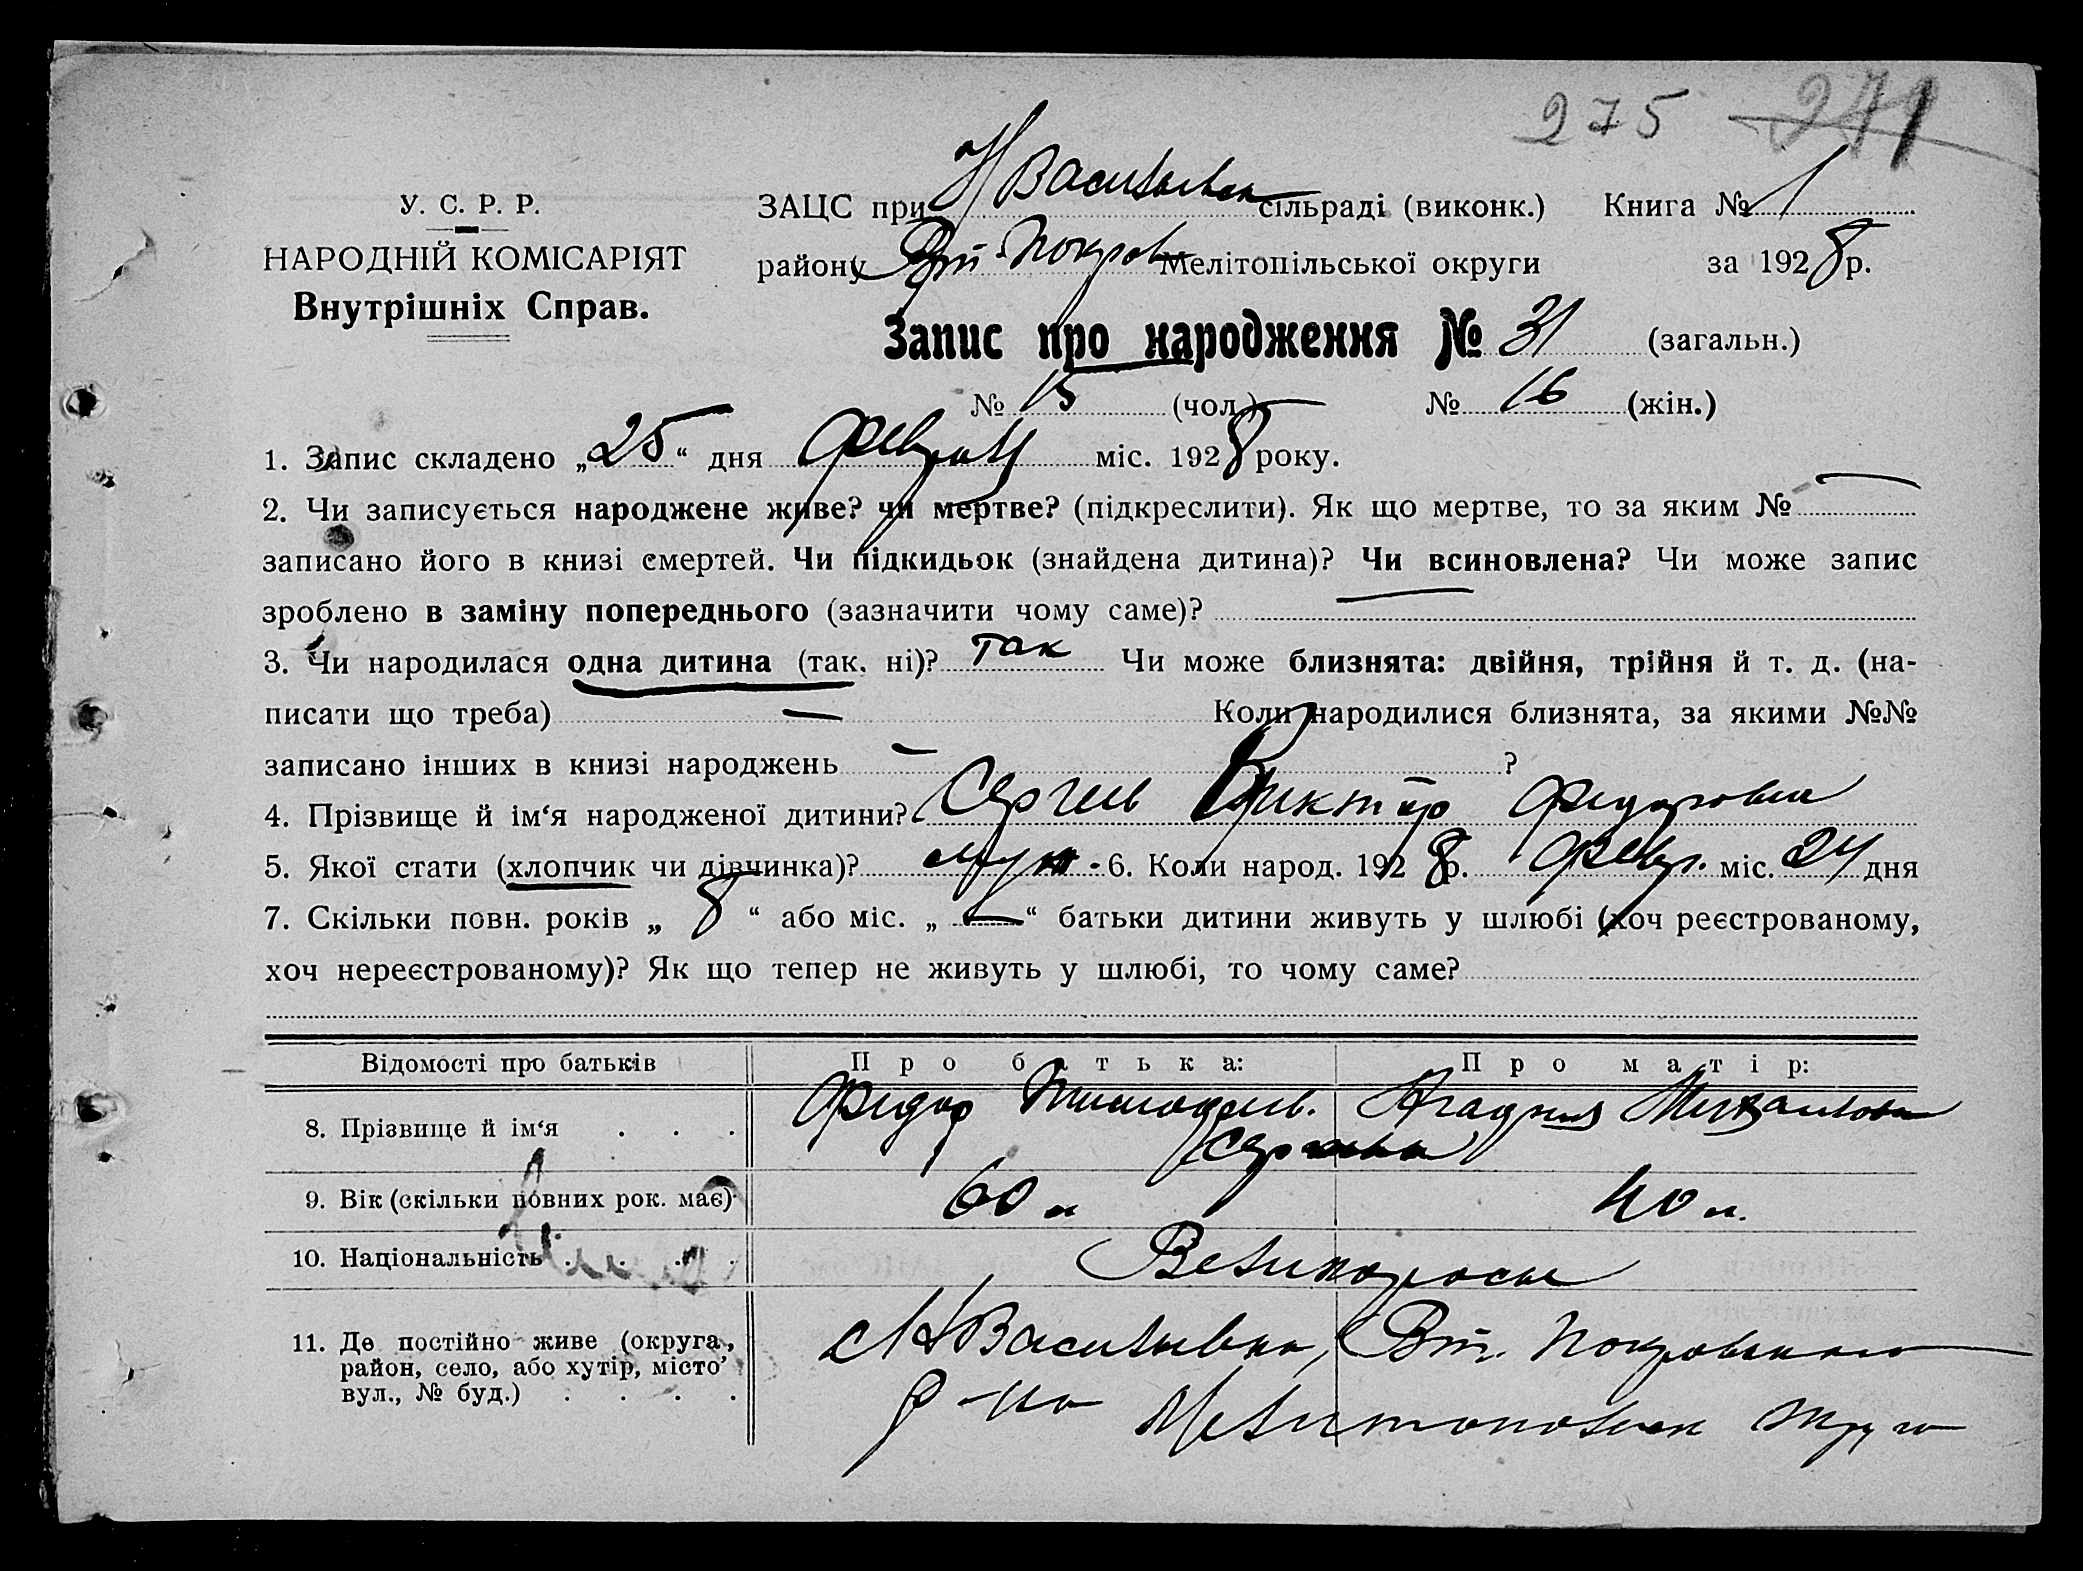 275 271
У. С. Р. Р.
НАРОДНІЙ КОМІСАРІЯТ
Внутрішніх Справ.
ЗАЦС при Н Васильевск сільраді (виконк.) Книга № 1
району Вт-Покров Мелітопільської округи за 1928 р.
Запис про народження № 31 (загальн.)
№ 15 (чол.) № 16 (жін.)
1. Запис складено „25“ дня міс. 1928 року.
2. Чи записується народжене живе? чи мертве? (підкреслити). Як що мертве, то за яким №
записано його в книзі смертей. Чи підкидьок (знайдена дитина)? Чи всиновлена? Чи може запис
зроблено в заміну попереднього (зазначити чому саме)?
3. Чи народилася одна дитина (так, ні)? так Чи може близнята: двійня, трійня й т. д. (на-
писати що треба) — Коли народилися близнята, за якими №№
записано інших в книзі народжень — ?
4. Прізвище й ім‘я народженої дитини? Виктор
5. Якої стати (хлопчик чи дівчинка)? муж. 6. Коли народ. 1928 р. Февр. міс. 24 дня
7. Скільки повн. років „ 8 “ або міс. „ — “ батьки дитини живуть у шлюбі (хоч реєстрованому,
хоч нереєстрованому)? Як що тепер не живуть у шлюбі, то чому саме?
Відомості про батьків Про батька: Про матір:
8. Прізвище й ім‘я . . . Федор
9. Вік (скільки повних рок. має) 60 л 40 л.
10. Національність . . . . Великороссы
11. Де постійно живе (округа, район, село, або хутір, місто’ вул., № буд.) . . . . Н Васильевка, Вт. Покровского
р-на Мелитопольск